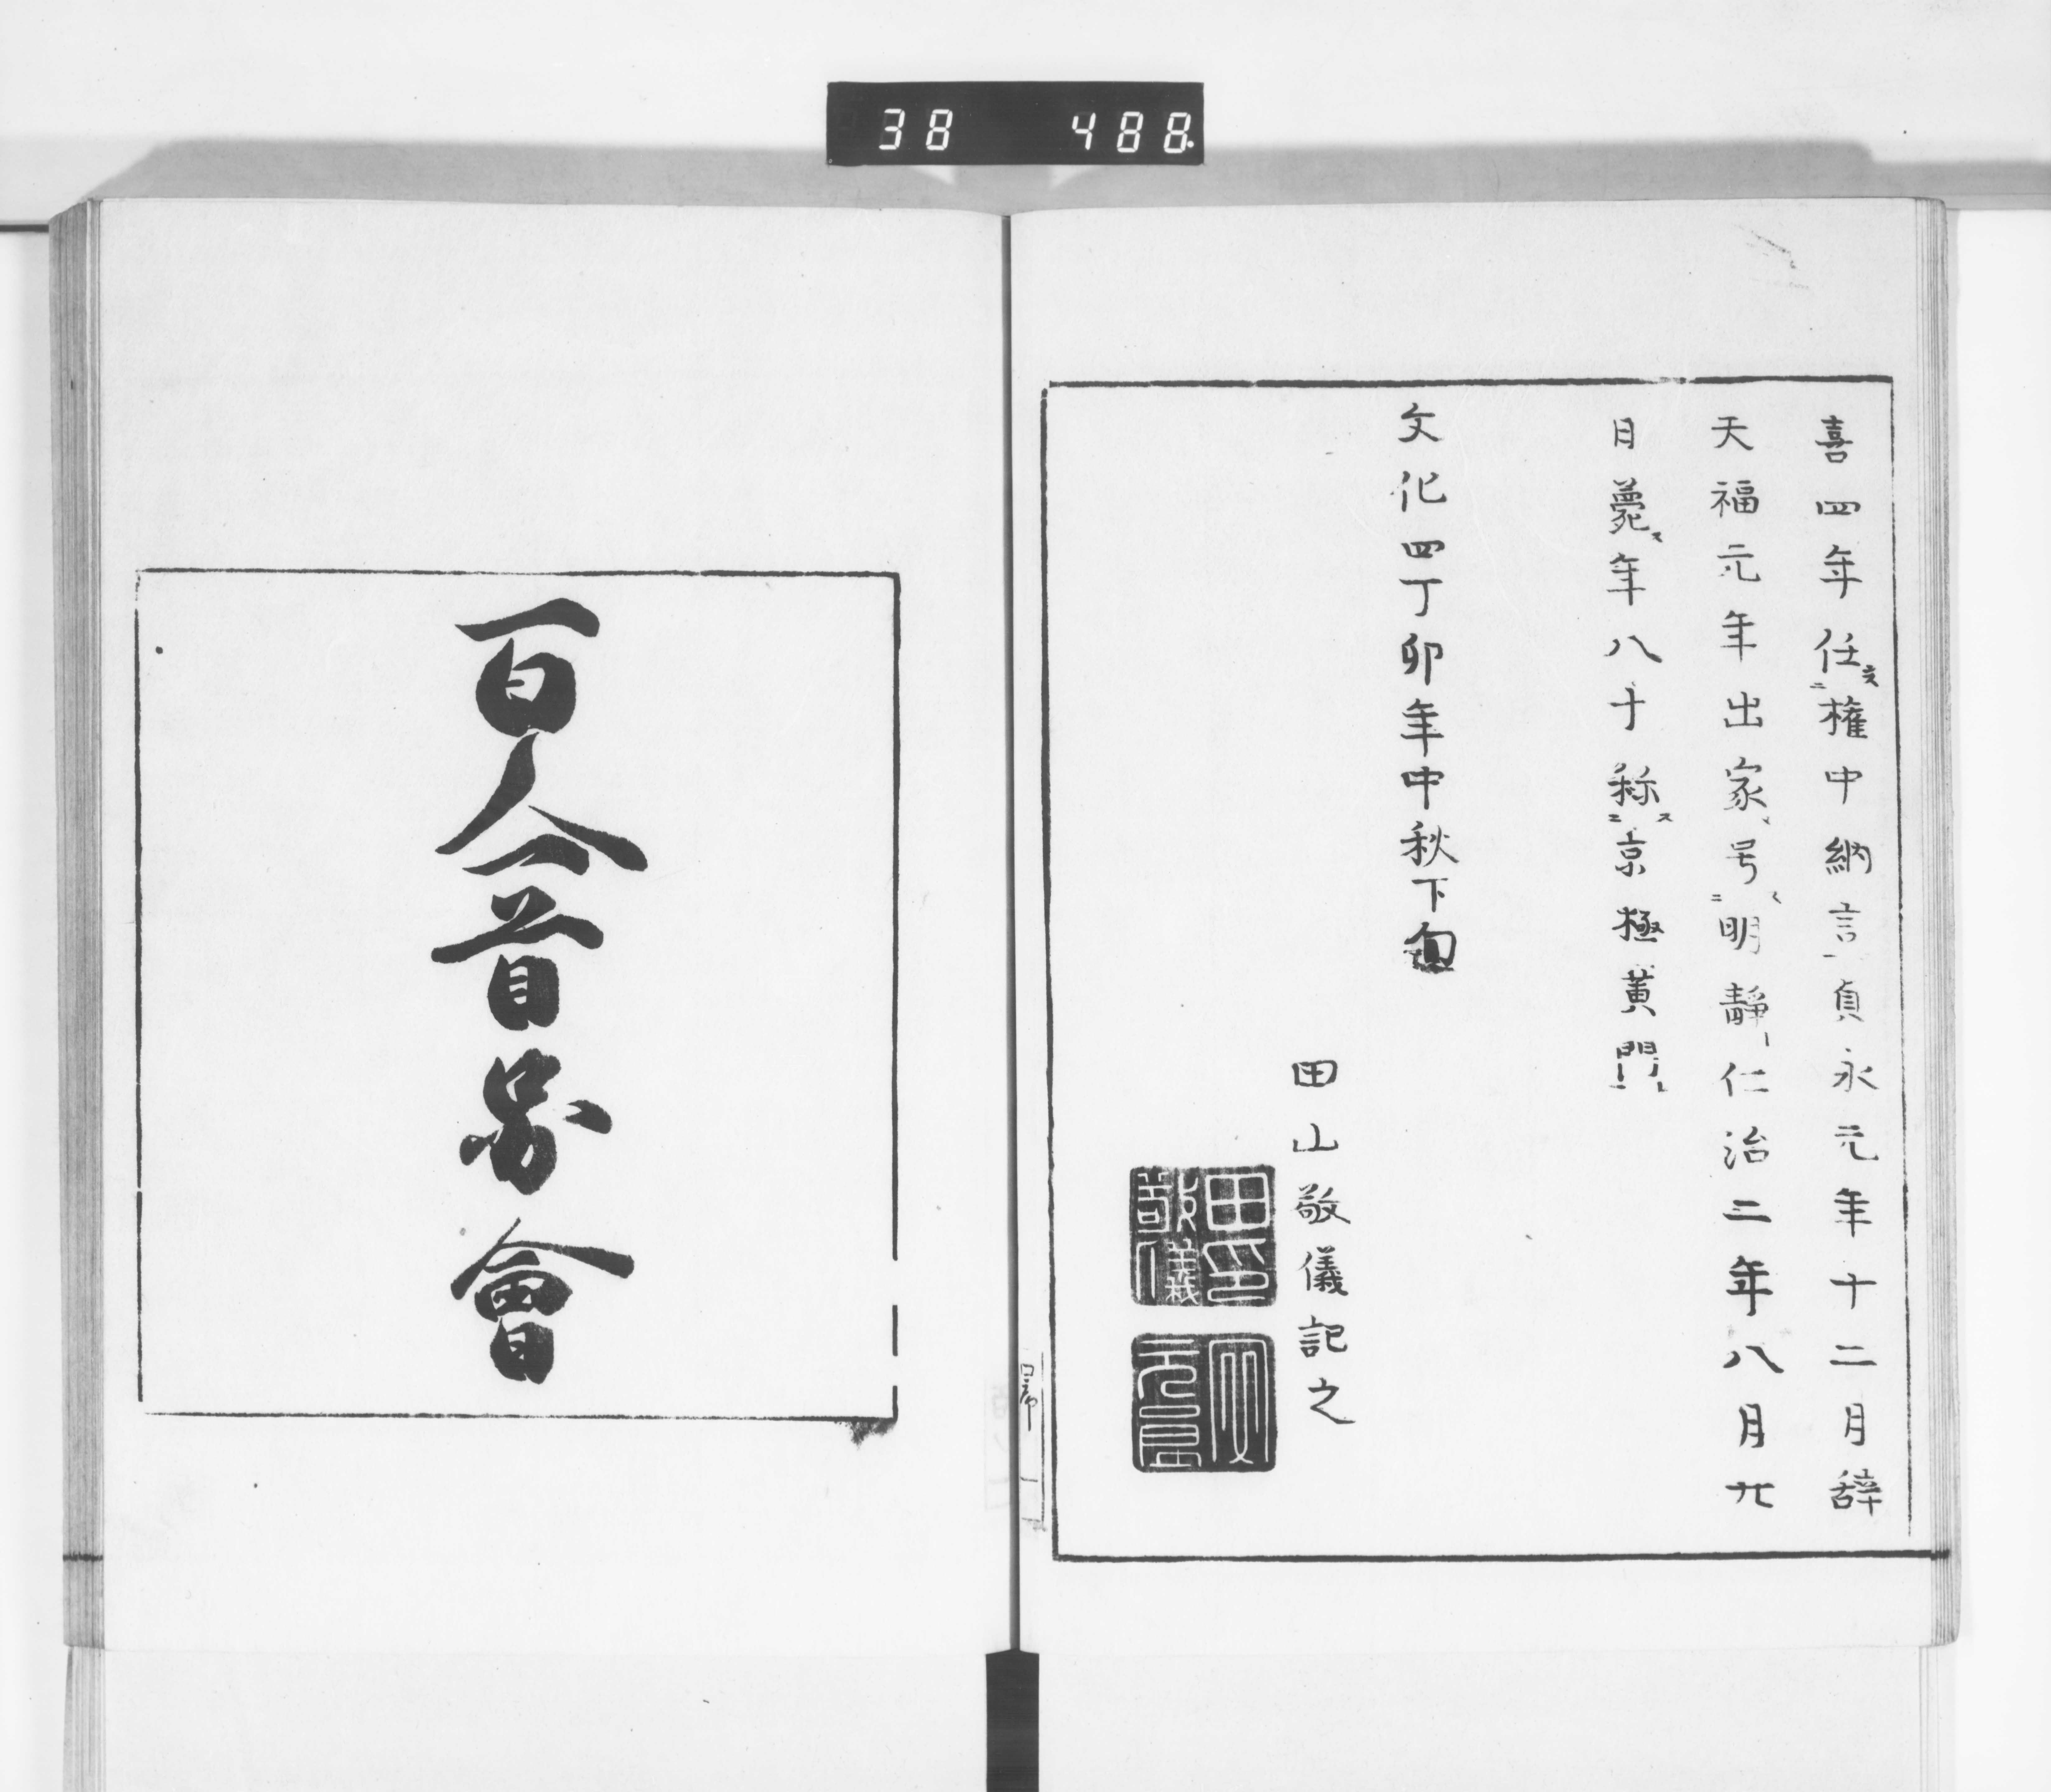 38 488
喜四年任権中納言貞永元年十二月辞
天福元年出家号明靜仁治二年八月廿
日薨年八十称京極黄門
文化四丁卯年中秋下旬
田山敬儀記之
田印敬儀
百人一首図會